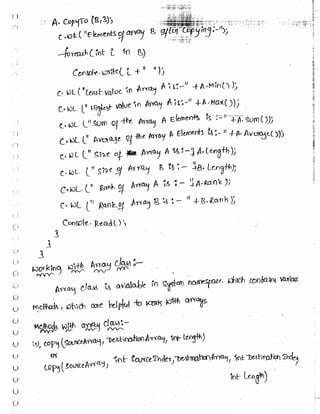 A. CopyTo (B,3);
C.WL ("Elements of array B after Copying:-");
foreach (int i in B)
Console.Write( i + " ");
C.WL ("least value in Array A is:-" +A.Min());
C.WL (" Highest value in Array A is:-" +A.Max());
C.WL ("sum of the Array A Elements is :-" +A.Sum());
C.WL (" Average of the Array A Elements is:-" +A.Average());
C.WL (" Size of Array A is:- A.Length);
C.WL (" size of Array B is :- B.Length);
C.WL (" Rank of Array A is :- A.Rank);
C.WL (" Rank of Array B is :- " +B.Rank);
Console.Read();
}
}
}
Working with Array class :-
Array class is available in System namespace. which contains various
methods, which are helpful to work with arrays.
Methods with array class:-
1), copy (SourceArray, DestinationArray, int Length)
or
copy (SourceArray, int SourceIndex, DestinationArray, int DestinationIndex,
int Length)